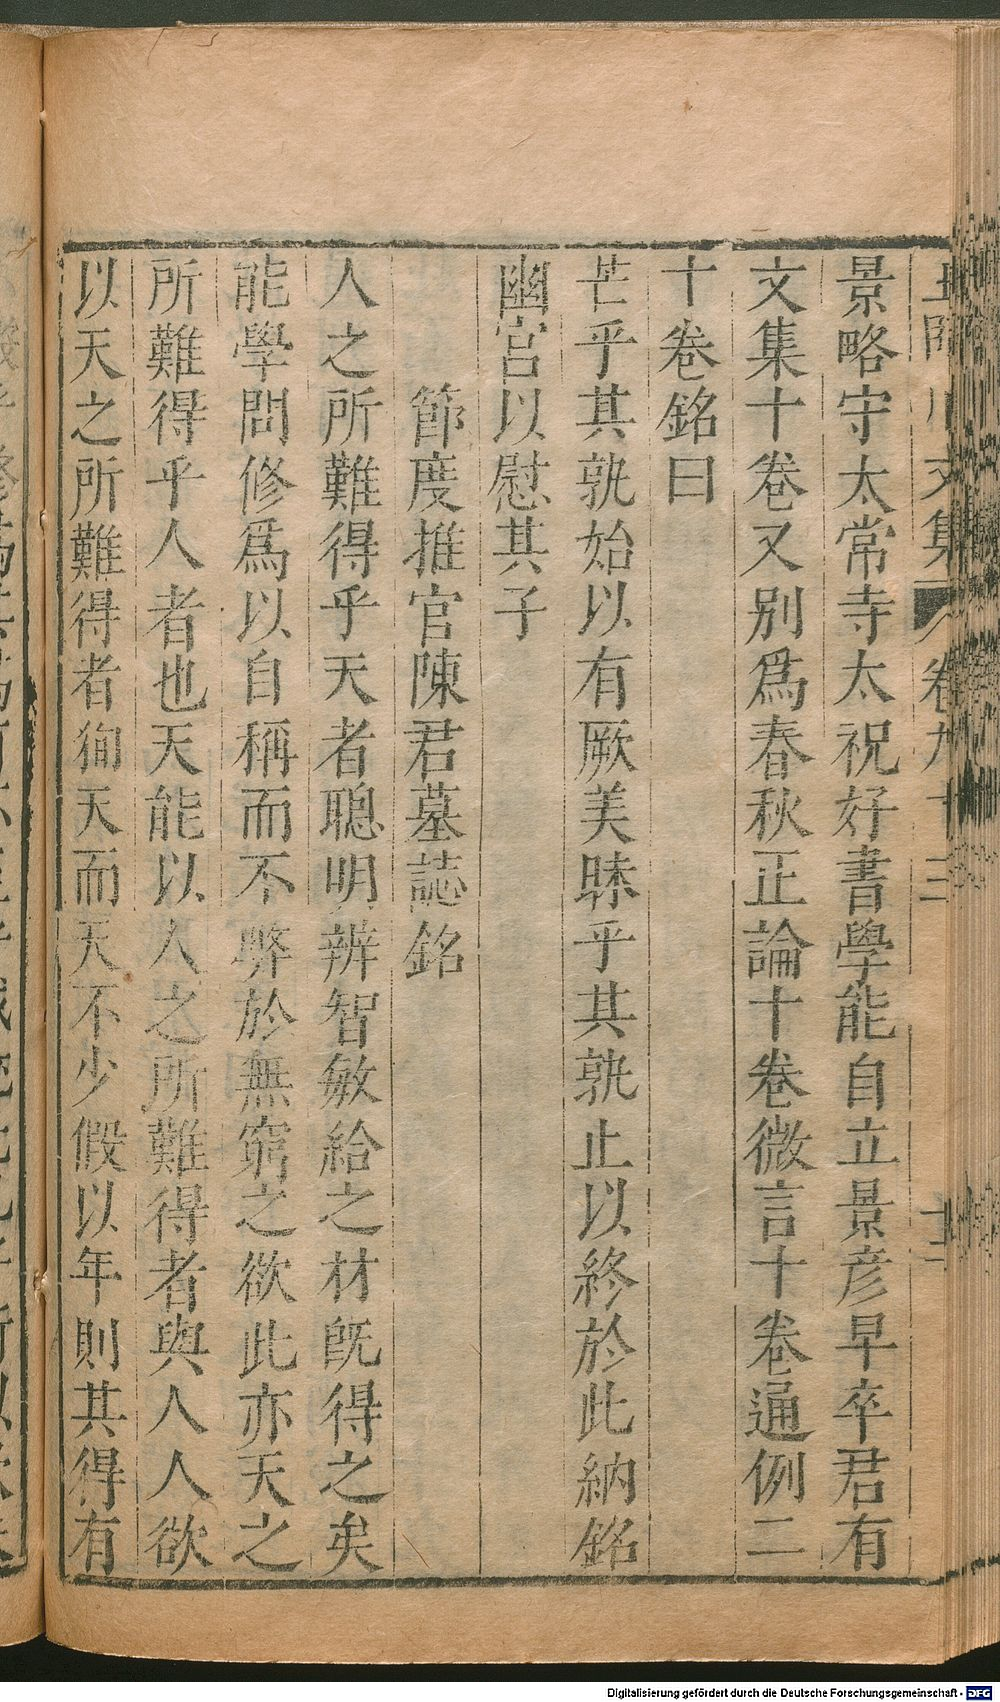 景略守太常寺太祝好書學能自立景彦早卒君有
文集十卷又别爲春秋正論十卷微言十卷通例二
十卷銘曰
芒乎其孰始以有厥美昧乎其孰止以終於此納銘
幽宫以慰其子
節度推官陳君墓誌銘
人之所難得乎天者聰明辨智敏給之材旣得之矣
能學問修爲以自稱而不弊於無窮之欲此亦天之
所難得乎人者也天能以人之所難得者與人人欲
以天之所難得者狥天而天不少假以年則其得有
Digitalisierung gefördert durch die Deutsche Forschungsgemeinschaft - DFG